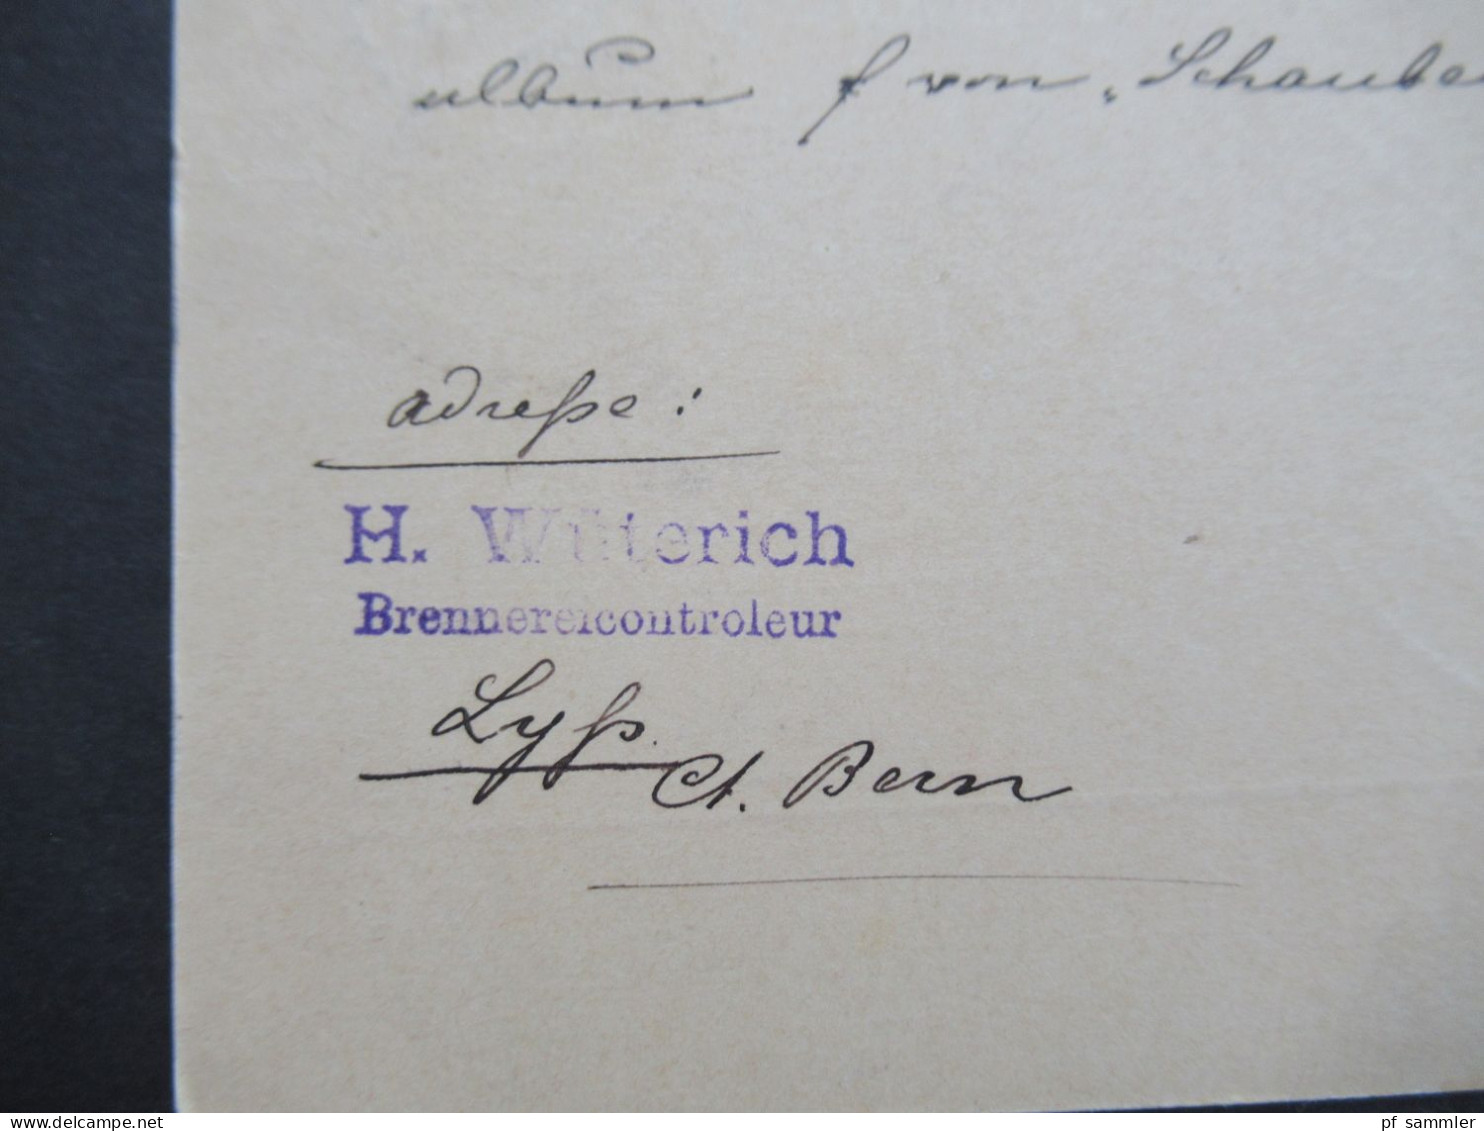 album f von „Schaube
Adreße:
H. Wüterich
Brennereicontroleur
Lyß.
Ct. Bern
delcampe.net
pf_sammler